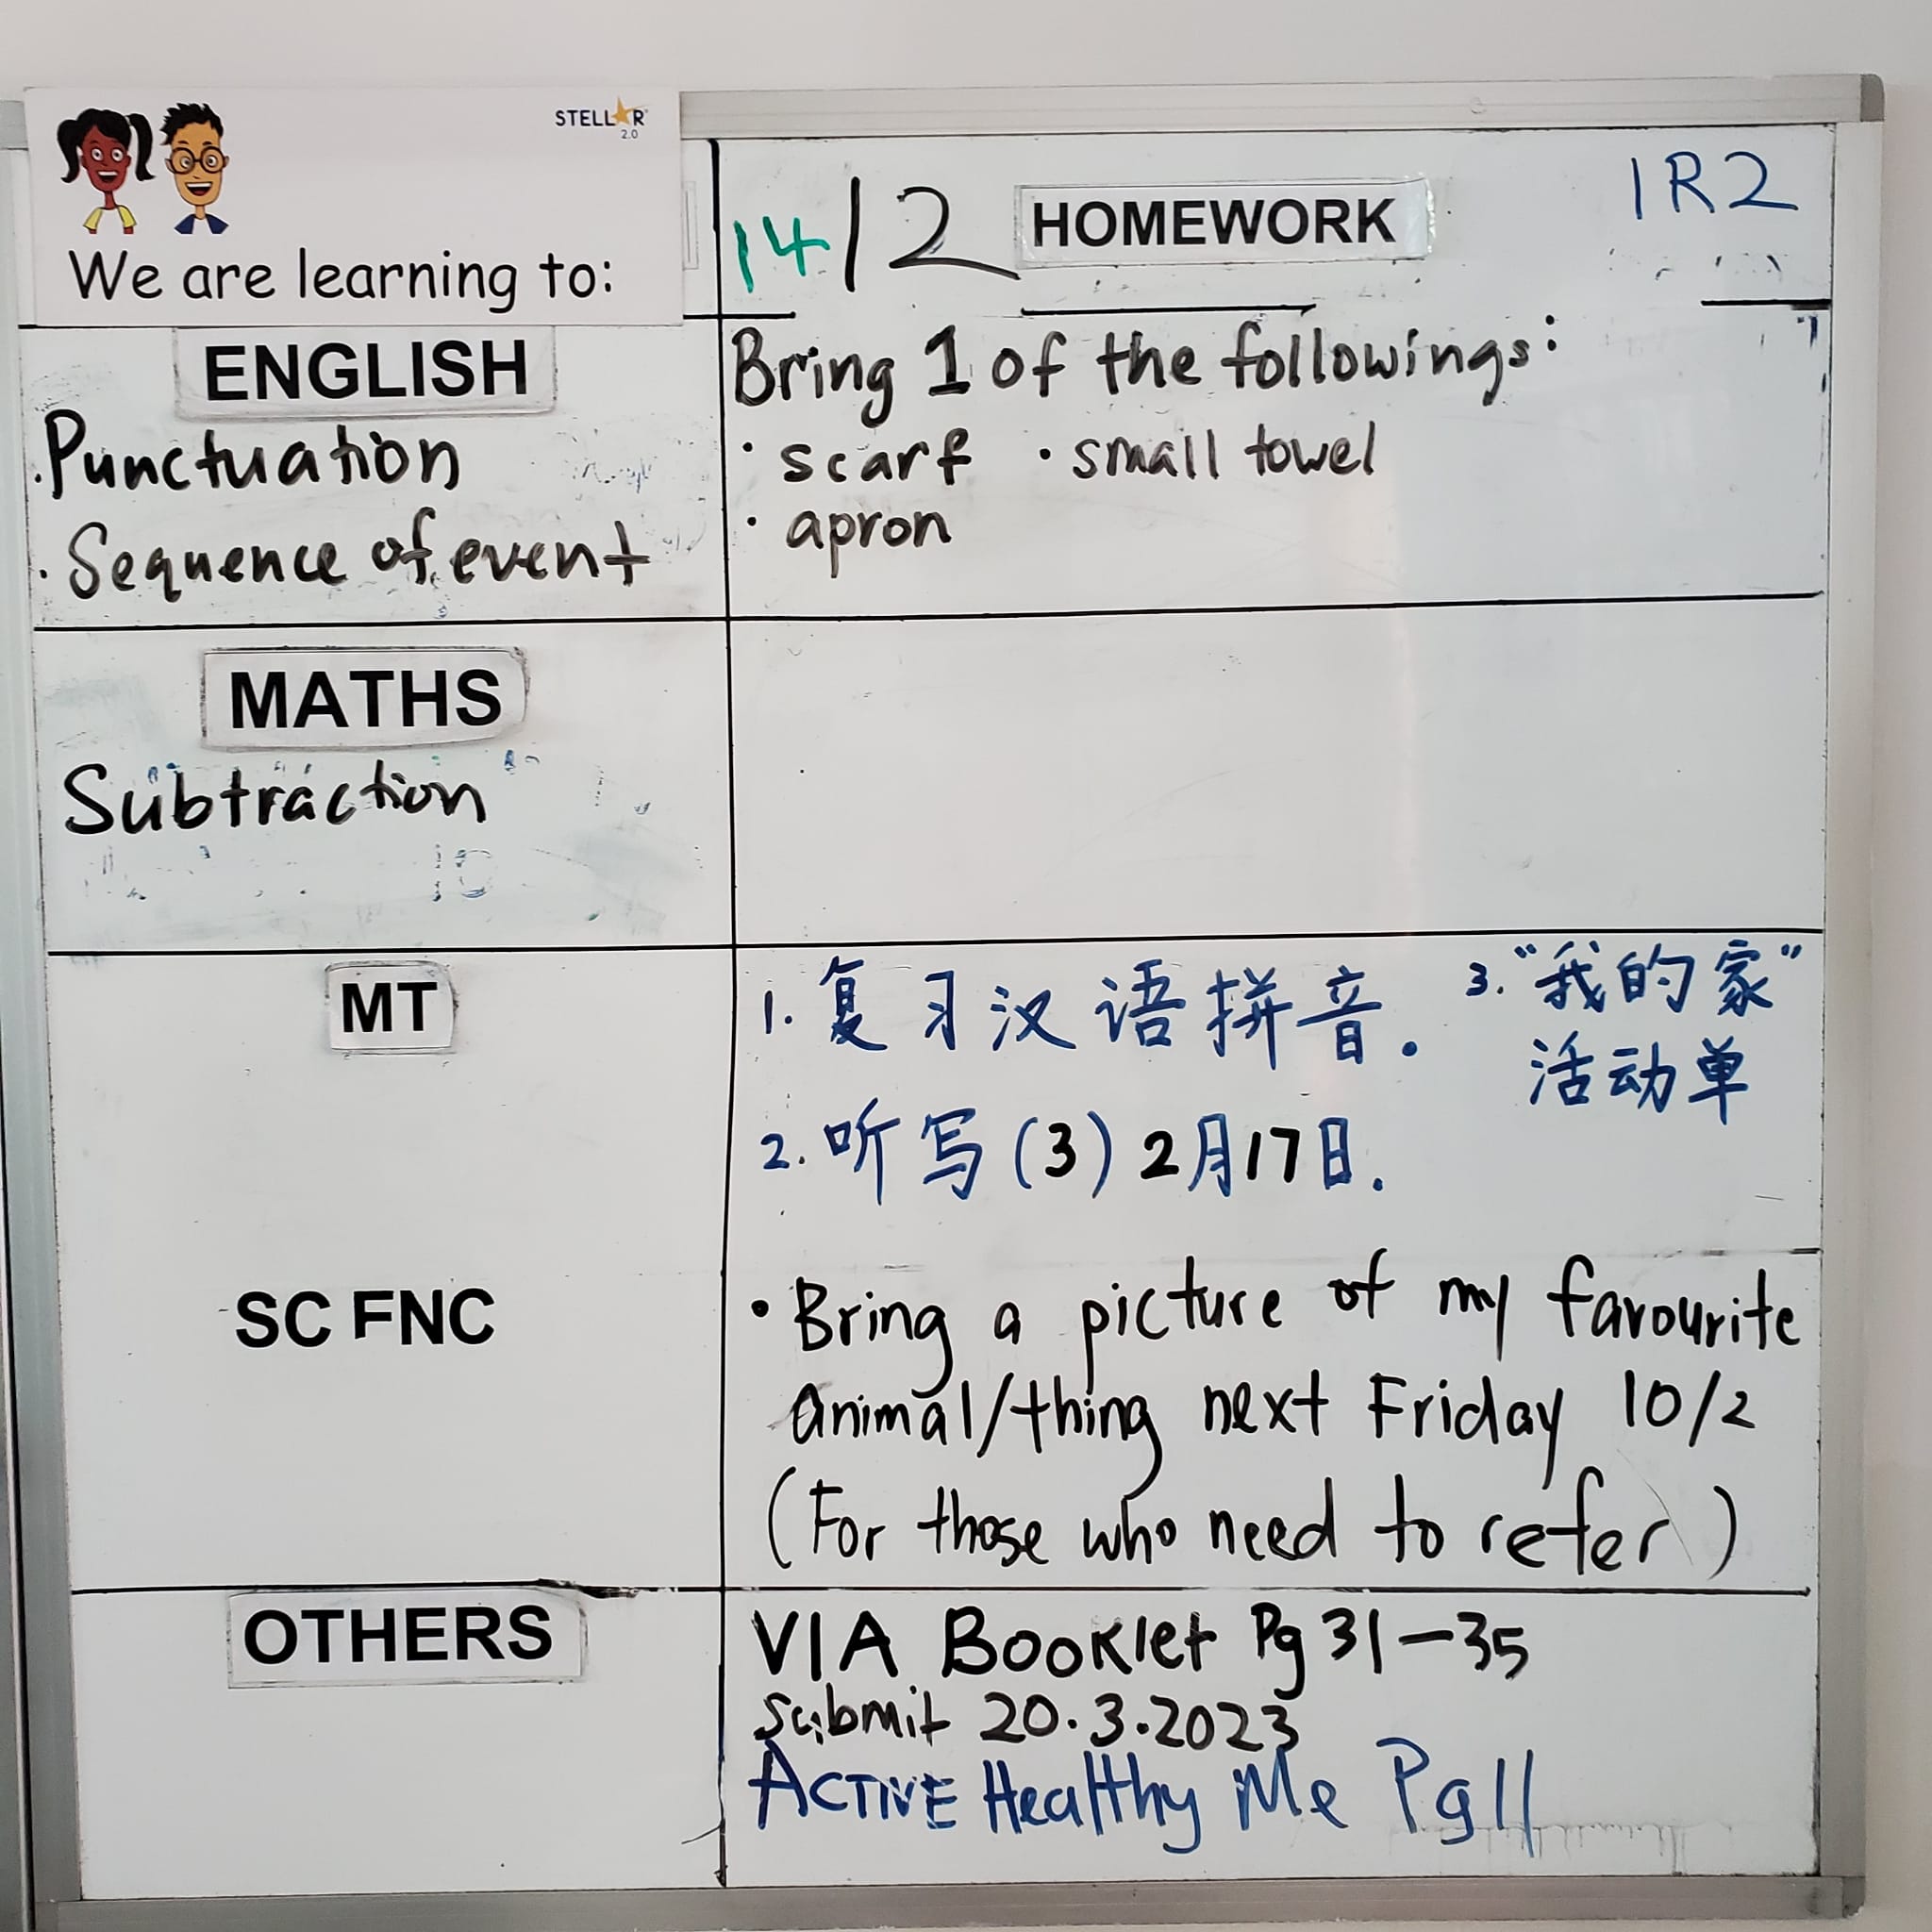 STELLAR 2.0
We are learning to:
14/2 HOMEWORK 1R2
ENGLISH
. Punctuation
. Sequence of event
Bring 1 of the followings:
· scarf · small towel
· apron
MATHS
Subtraction
MT
1. 复习汉语拼音.
2. 听写(3) 2月17日.
3. "我的家"
活动单
SC FNC
• Bring a picture of my favourite
animal/thing next Friday 10/2
(For those who need to refer)
OTHERS
VIA Booklet Pg 31-35
submit 20.3.2023
ACTIVE Healthy Me Pg 11